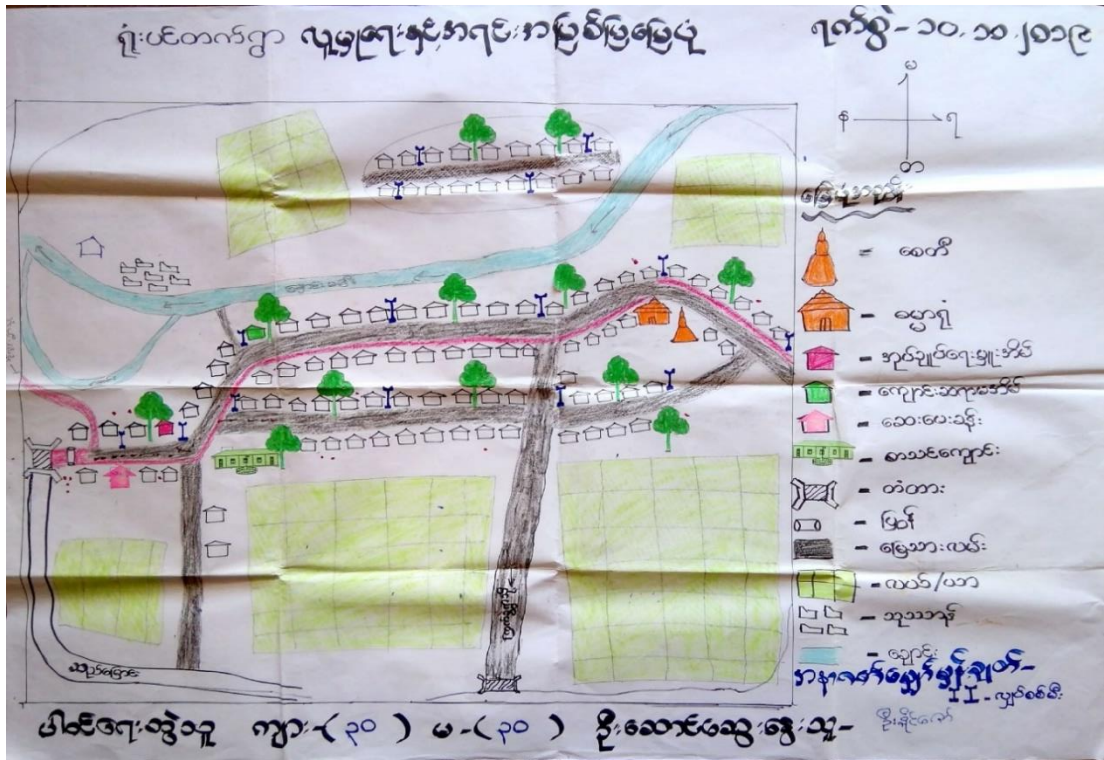 ရုံးပင်တက်ရွာ လူမှုရေးနှင့်အရင်းအမြစ်ပြမြေပုံ ရက်စွဲ-၁၀.၁၁.၂၀၁၉
မ
န ရ
တ
မြေပုံအညွှန်း
- စေတီ
- ဓမ္မာရုံ
- အုပ်ချုပ်ရေးမှူးအိမ်
- ကျောင်းဆရာမအိမ်
- ဆေးပေးခန်း
- စာသင်ကျောင်း
- တံတား
- ပြွန်
- မြေသားလမ်း
- လယ်/ယာ
- သုသာန်
- ချောင်း
အနာဂတ်မျှော်မှန်းချက်-
- လျှပ်စစ်မီး
ပါဝင်ရေးဆွဲသူ ကျား-(၃၀) မ-(၃၀) ဦးဆောင်ဆွေးနွေးသူ- ဦးခိုင်ဇော်